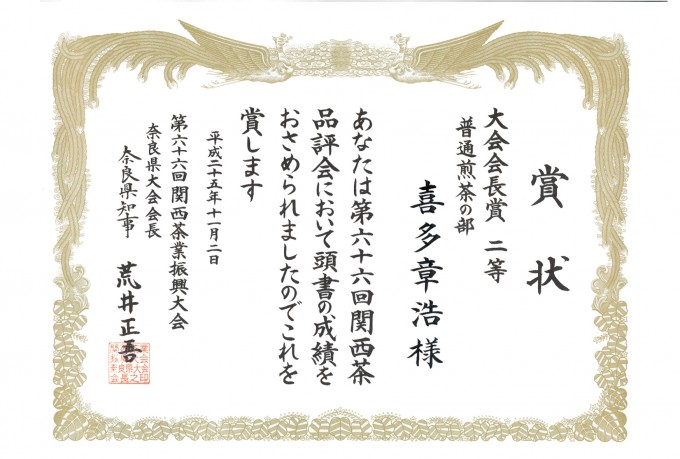 賞状
大会会長賞 二等
普通煎茶の部
喜多章浩様
あなたは第六十六回関西茶
品評会において頭書の成績を
おさめられましたのでこれを
賞します
平成二十五年十一月二日
第六十六回関西茶業振興大会
奈良県大会会長
奈良県知事 荒井正吾